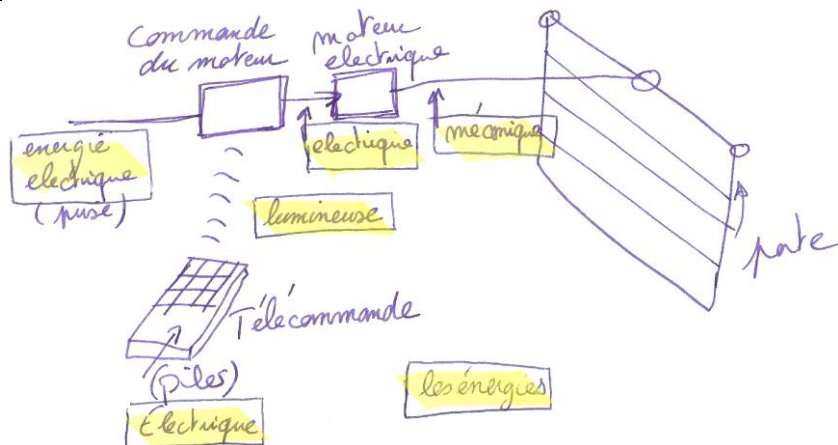 Commande
du moteur
moteur
electrique
energie
electrique
(prise)
electrique
mécanique
lumineuse
porte
Télécommande
(piles)
Electrique
les énergies